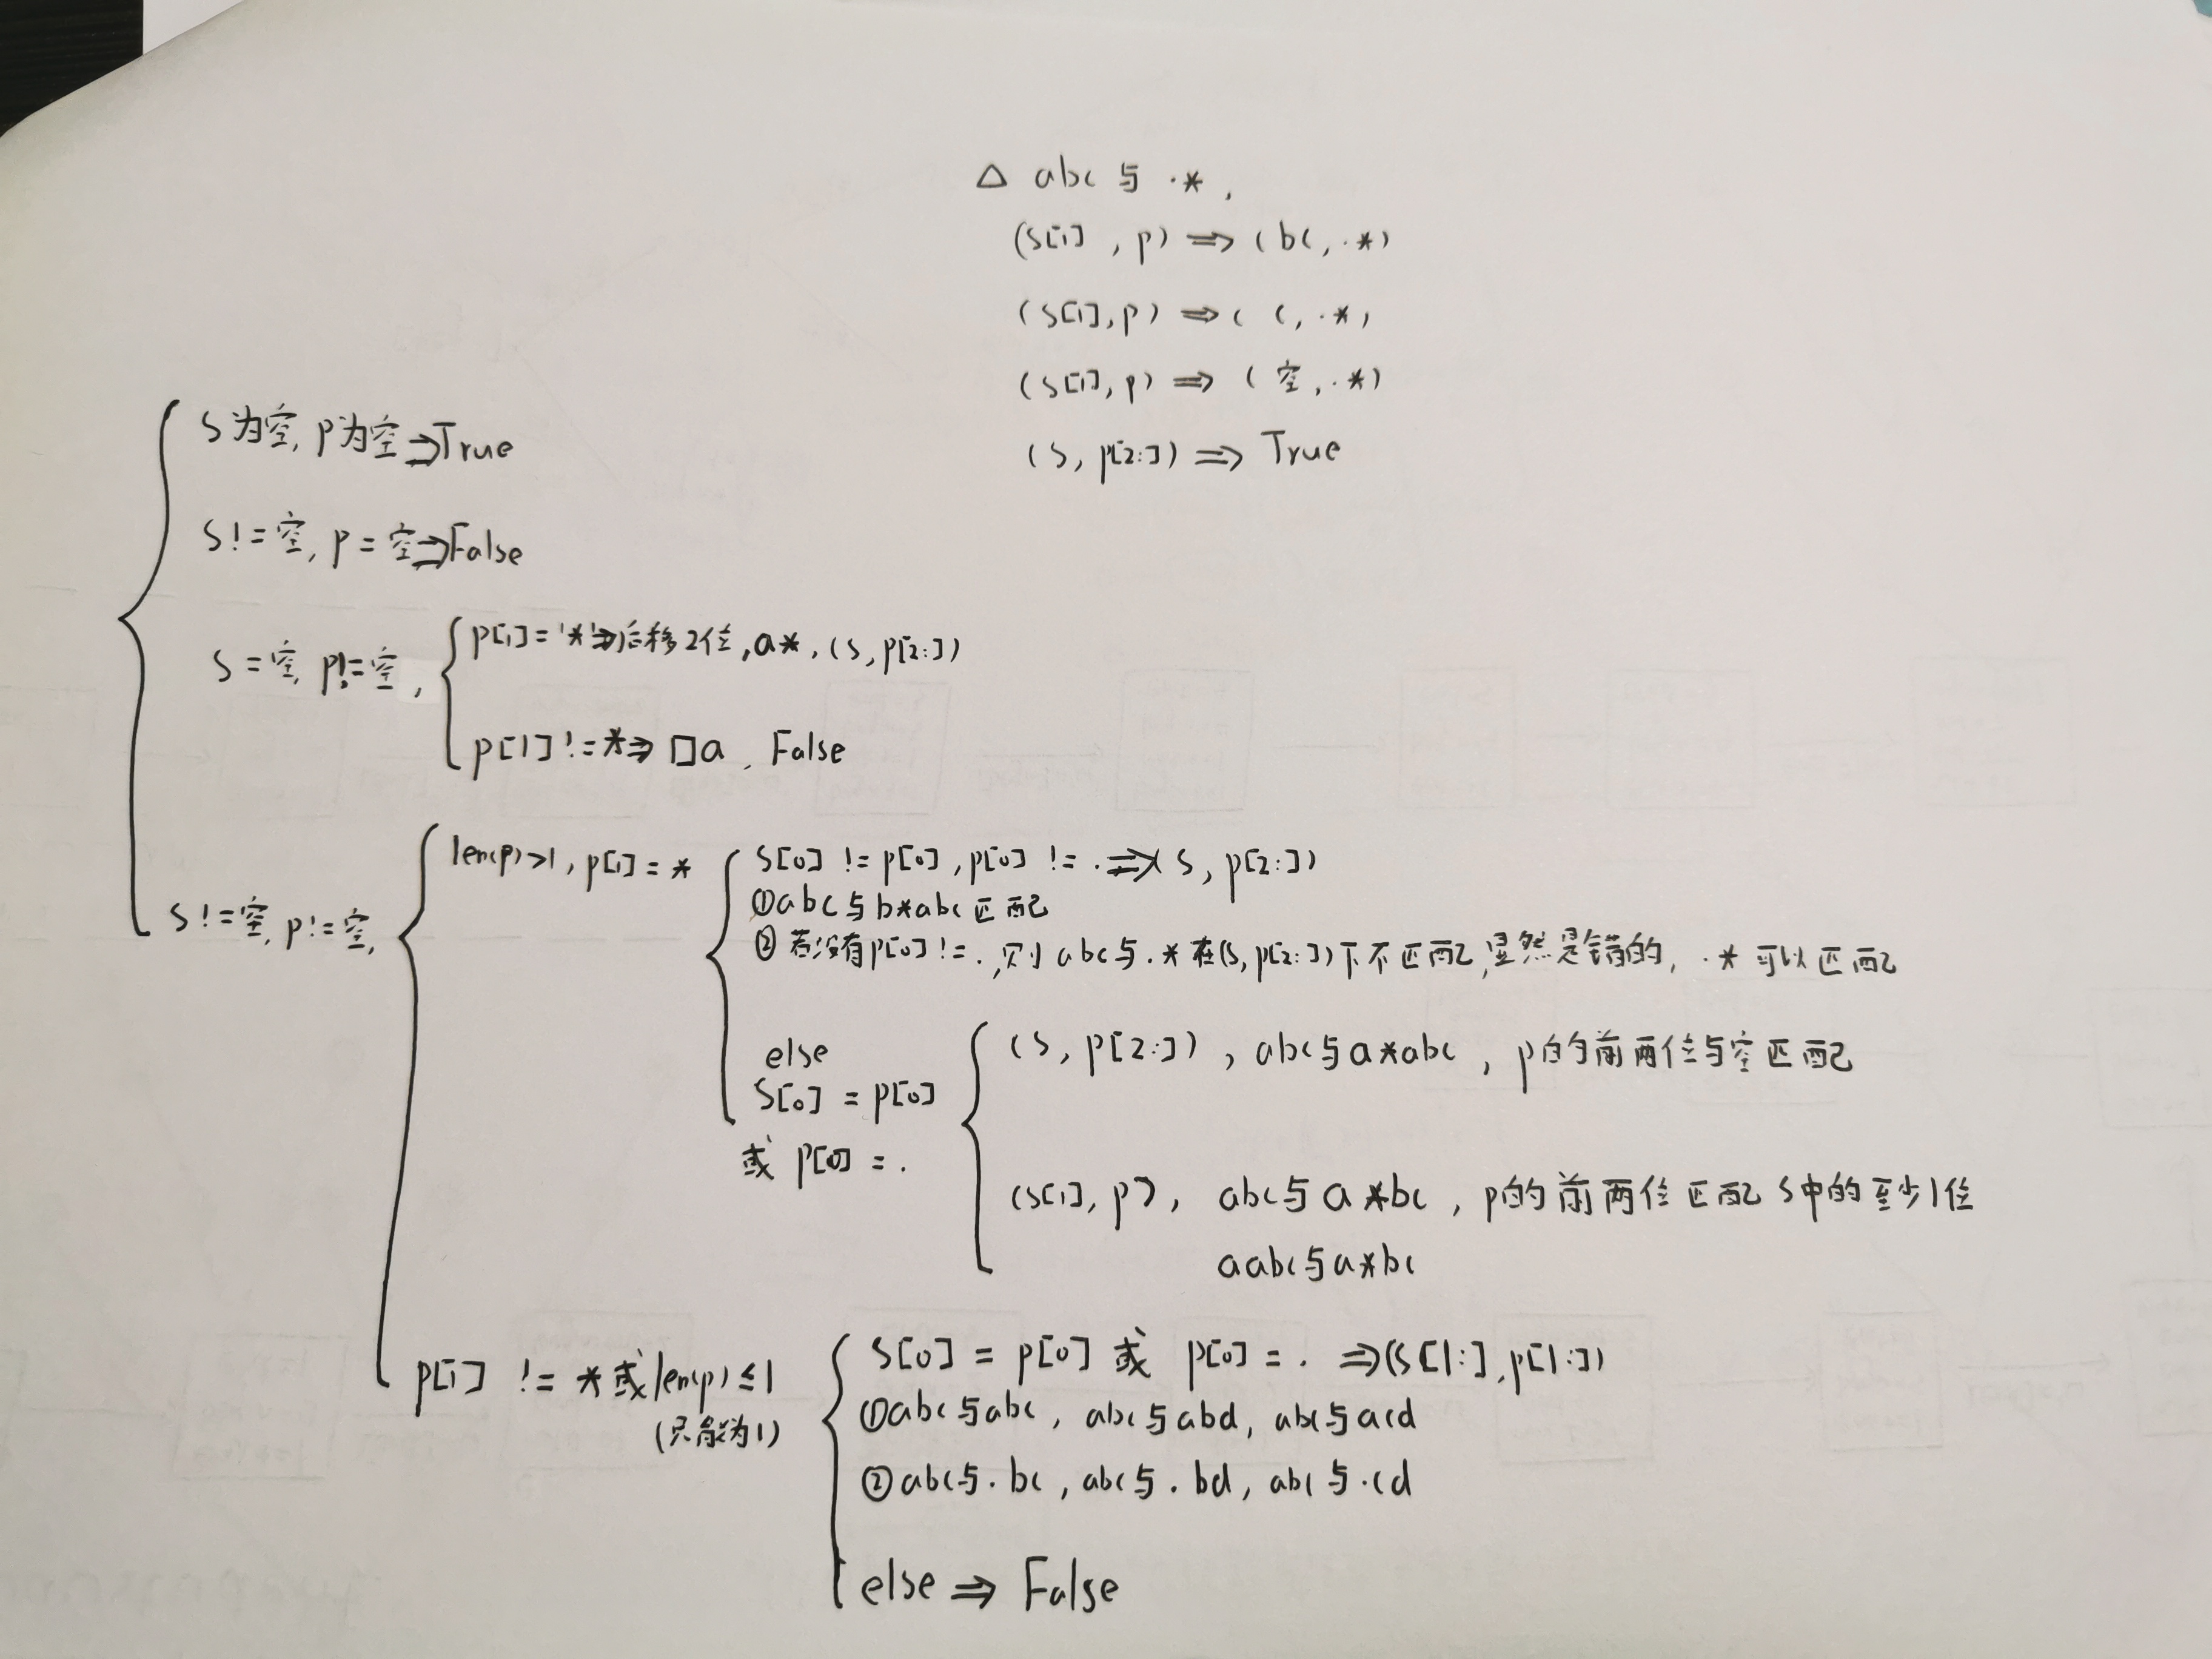 △ abc 与 .*,
(s[1], p) ⇒ (bc, .*)
(s[1], p) ⇒ ( c, .*)
(s[1], p) ⇒ (空, .*)
(s, p[2:]) ⇒ True
s为空, p为空⇒True
s!=空, p=空⇒False
s=空, p!=空,
p[1]='*'⇒后移2位, a*, (s, p[2:])
p[1]!=*⇒ □a, False
s!=空, p!=空,
len(p)>1, p[1]=*
s[0] != p[0], p[0] != . ⇒(s, p[2:])
①abc与b*abc匹配
②若没有p[0]!=., 则abc与.*在(s, p[2:])下不匹配, 显然是错的, .*可以匹配
else
s[0] = p[0]
或 p[0] = .
(s, p[2:]), abc与a*abc, p的前两位与空匹配
(s[1], p), abc与a*bc, p的前两位匹配s中的至少1位
aabc与a*bc
p[1] != *或len(p)≤1
(只能为1)
s[0] = p[0] 或 p[0] = . ⇒(s[1:], p[1:])
①abc与abc, abc与abd, abc与acd
②abc与.bc, abc与.bd, abc与.cd
else ⇒ False